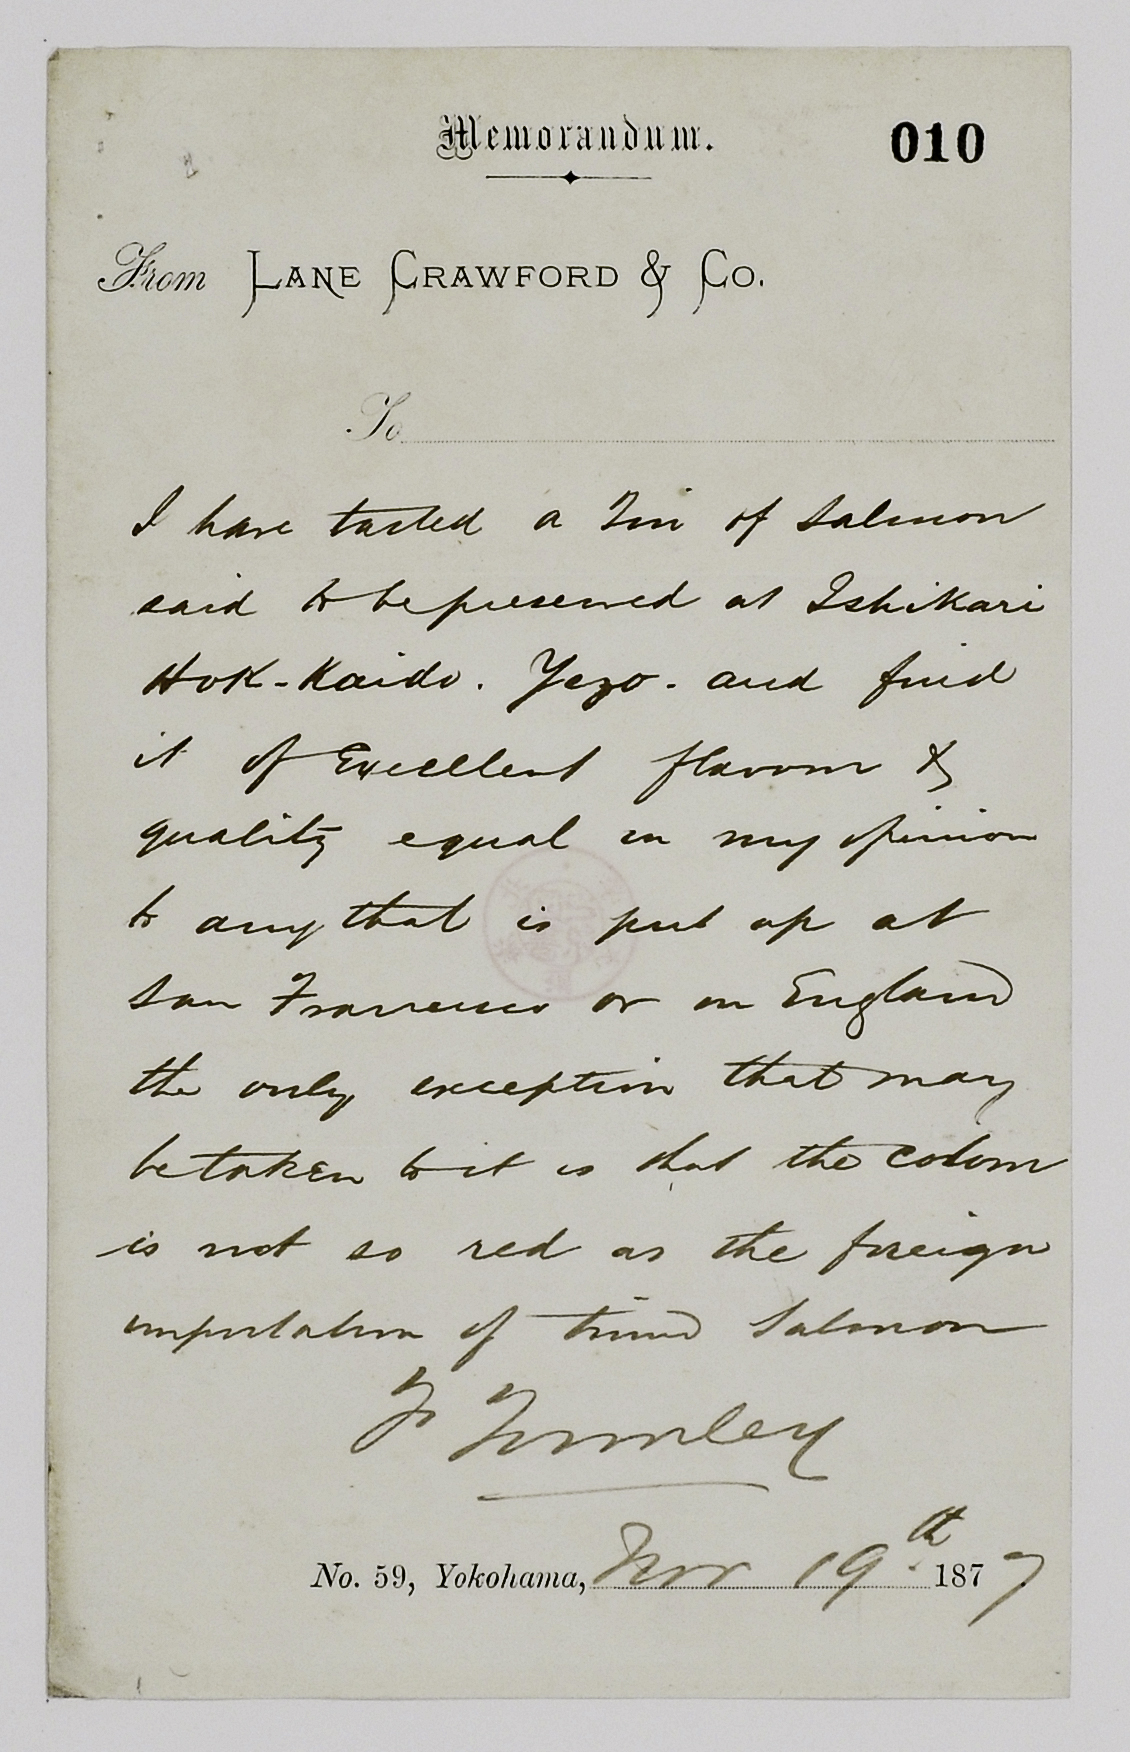 Memorandum.
010
From LANE CRAWFORD & Co.
To
I have tasted a Tin of Salmon
said to be preserved at Ishikari
Hok-Kaido. Yezo. and find
it of Excellent flavour &
quality equal in my opinion
to any that is put up at
San Francisco or in England
the only exception that may
be taken to it is that the colour
is not so red as the foreign
importation of tinned Salmon
No. 59, Yokohama, Nov 19th 1877